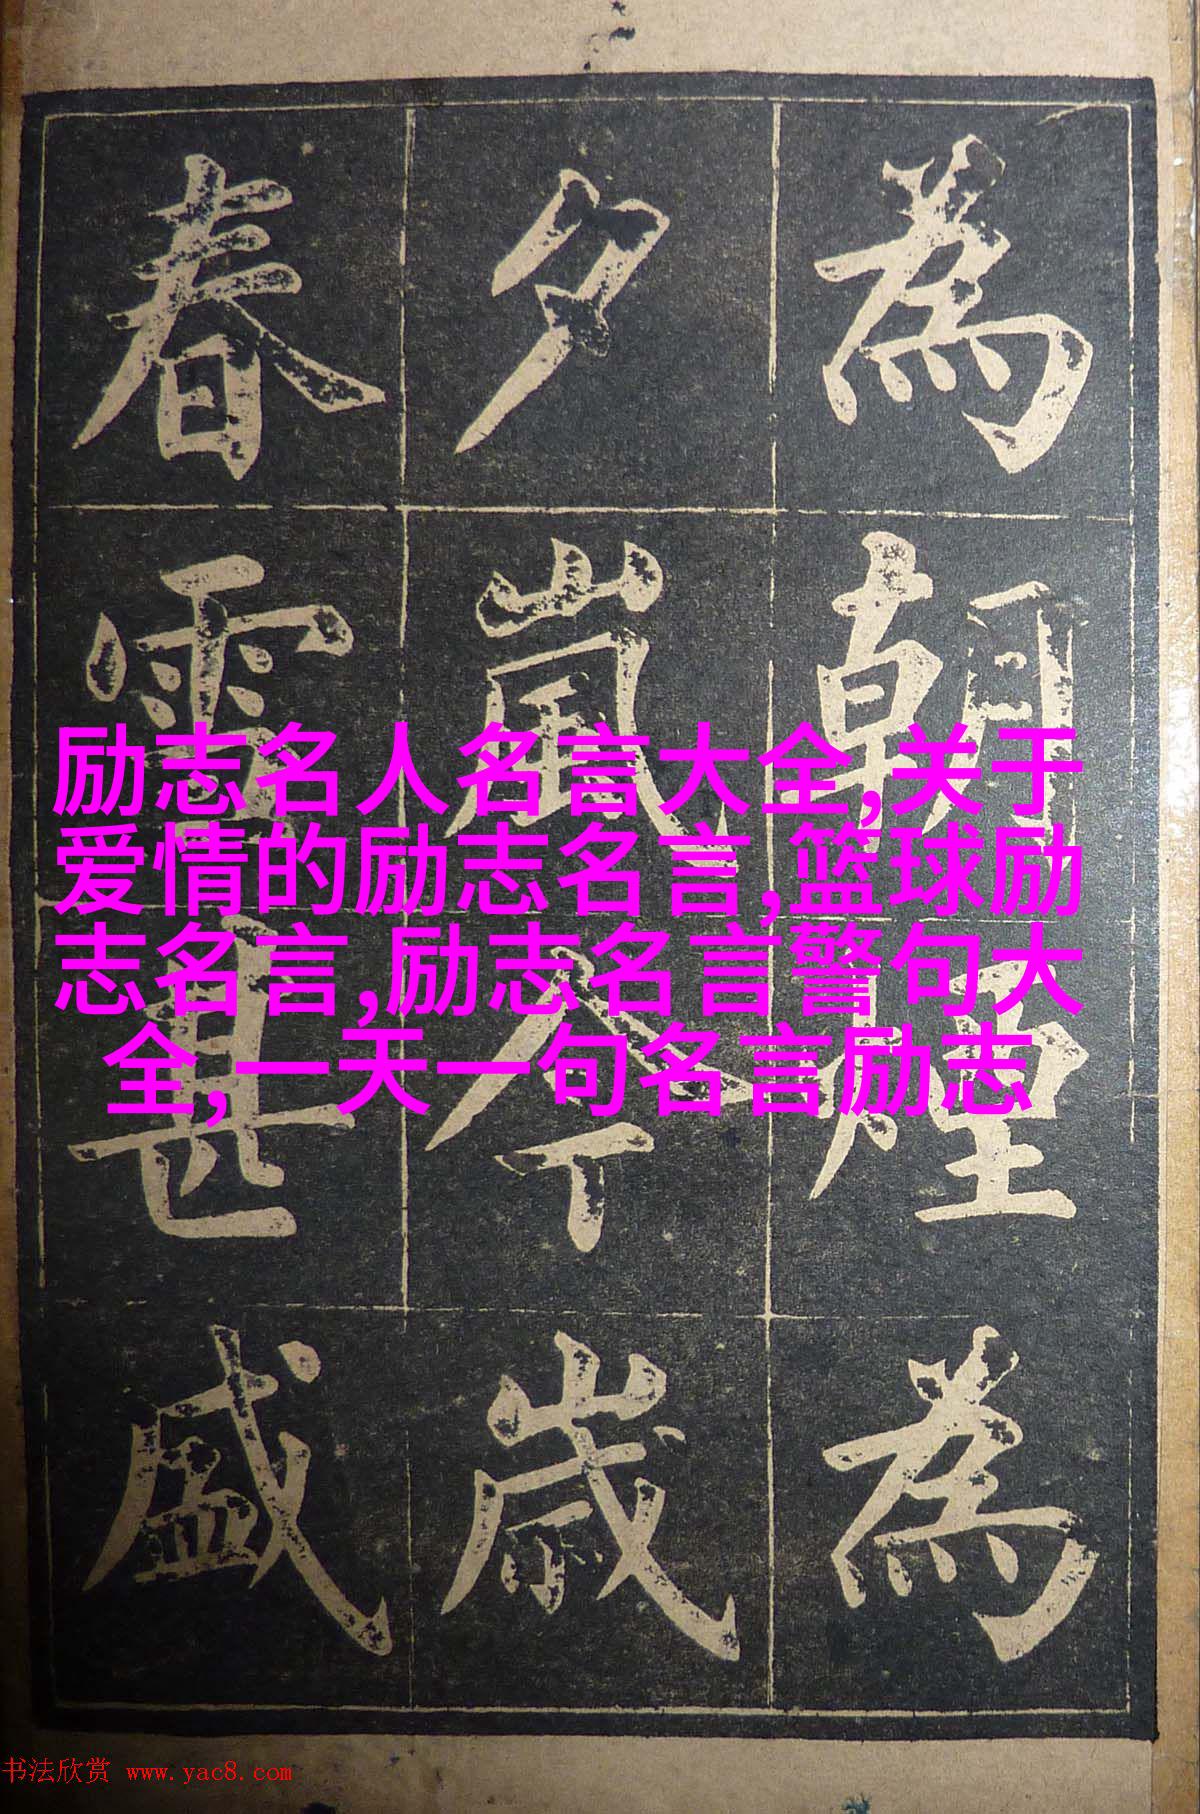 為朝煙為
夕嵐今歲
春雪甚盛
励志名人名言大全,关于
爱情的励志名言,篮球励
志名言,励志名言警句大
全,一天一句名言励志
书法欣赏 www.yac8.com